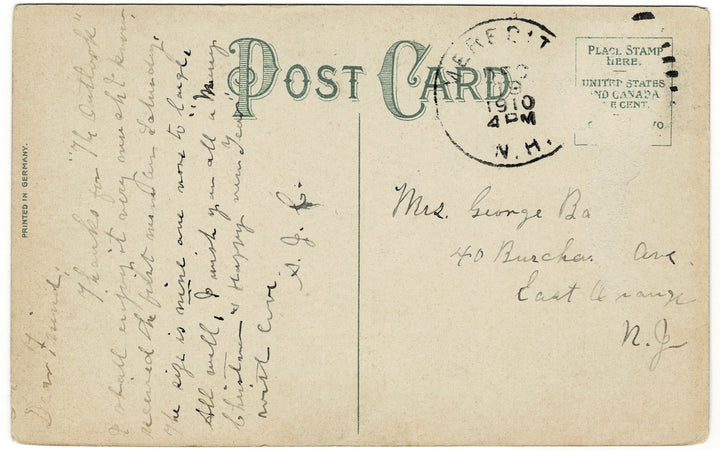 POST CARD
MEREDIT
DEC
1910
4 PM
N.H.
PLACE STAMP
HERE.
UNITED STATES
AND CANADA
E CENT.
PRINTED IN GERMANY.
Dear Friend,
Thanks for "The Outlook"
I shall enjoy it very much I know
received the first number Saturday.
The size is nine and not to large.
All well, I wish you all a "Merry
Christmas & Happy New Year"
with love
S. J.
Mrs. George Ba
40 Burcha Ave.
East Orange
N.J